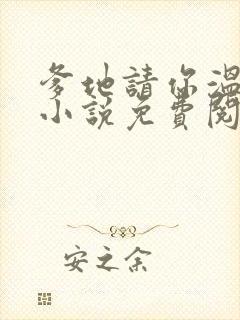 爹地請你溫
小說免費閱
安之余